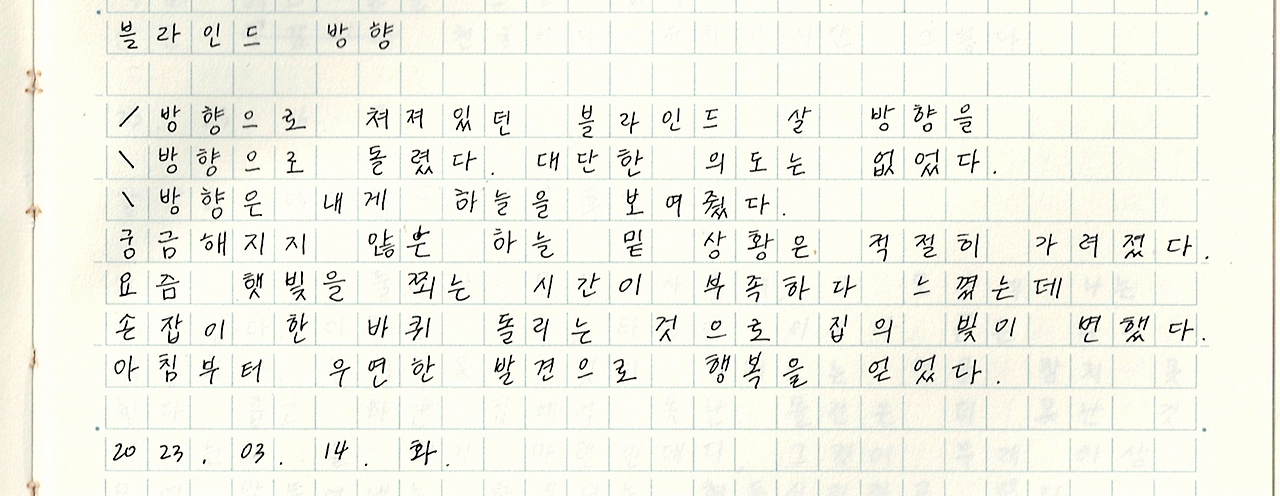 블라인드 방향
/ 방향으로 쳐져있던 블라인드 살 방향을
\ 방향으로 돌렸다. 대단한 의도는 없었다.
\ 방향은 내게 하늘을 보여줬다.
궁금해지지 않은 하늘 밑 상황은 적절히 가려졌다.
요즘 햇빛을 쬐는 시간이 부족하다 느꼈는데
손잡이 한 바퀴 돌리는 것으로 집의 빛이 변했다.
아침부터 우연한 발견으로 행복을 얻었다.
2023. 03. 14. 화.